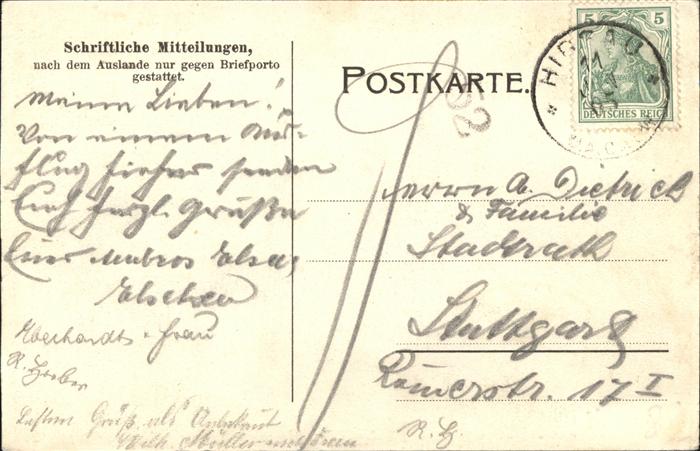 Schriftliche Mitteilungen,
nach dem Auslande nur gegen Briefporto
gestattet.
Meine Lieben!
Von einem Aus-
flug hieher senden
Euch herzl. Grüße
Eure Elsa
Eberhardt u. Frau
Wilh. Müller
POSTKARTE.
52
5 5
DEUTSCHES REICH
HIRSAU
11
Herrn A. Dietrich
& Familie
Stadtrath
Stuttgart
Römerstr. 17 I